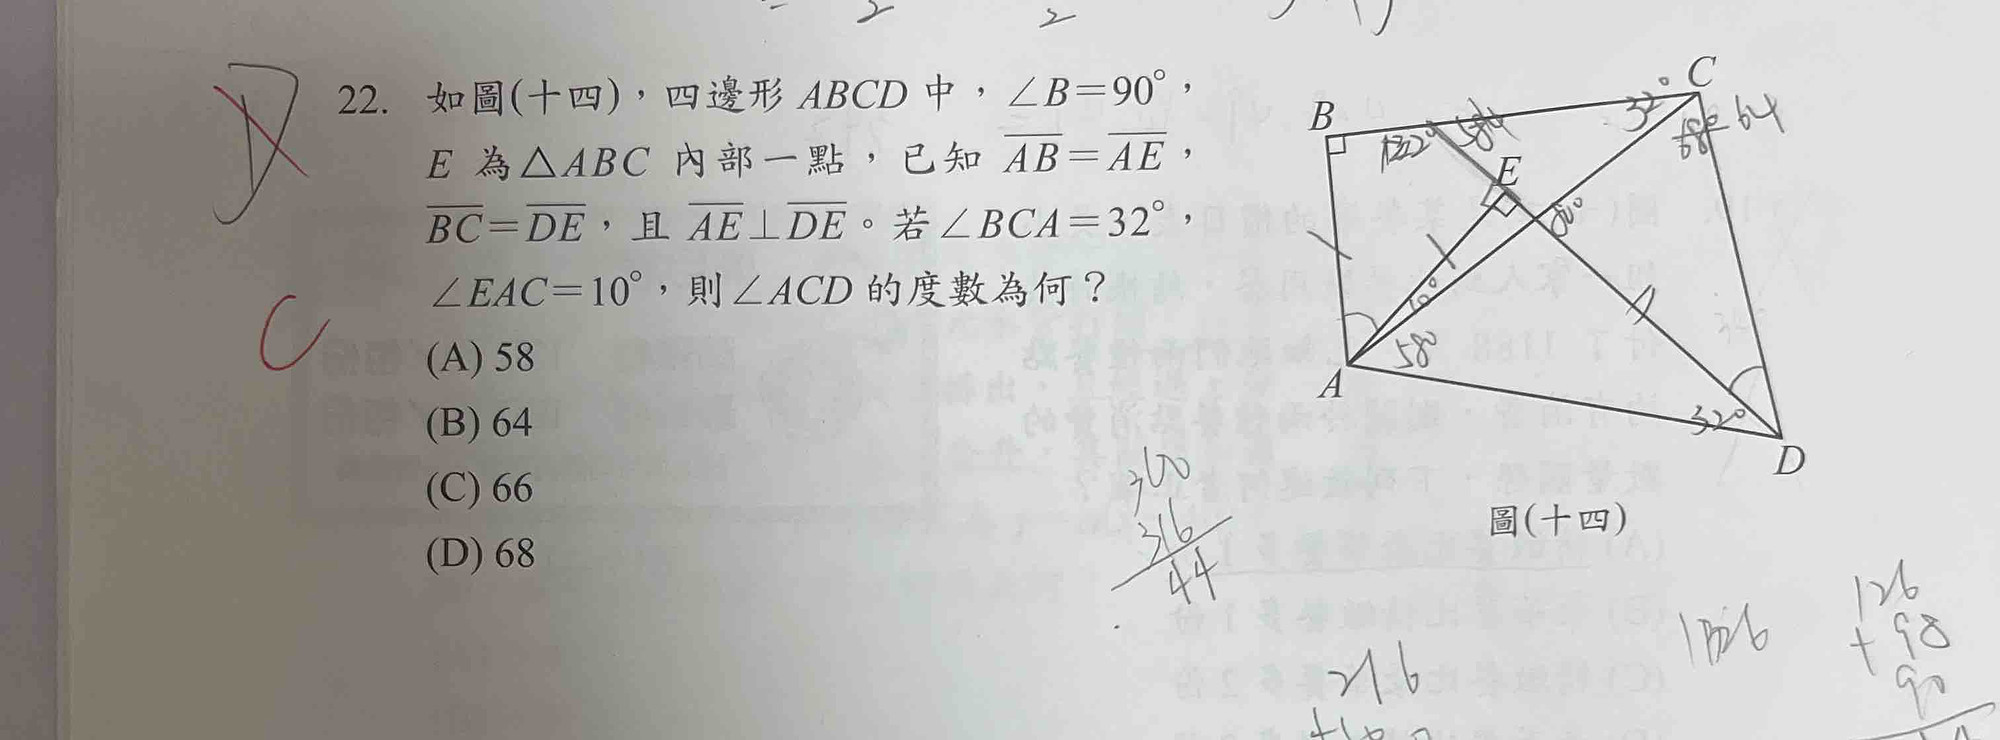 2
2
D
22. 如圖(十四)，四邊形 ABCD 中，∠B=90°，
E 為△ABC 內部一點，已知 AB=AE，
BC=DE，且 AE⊥DE。若∠BCA=32°，
∠EAC=10°，則∠ACD 的度數為何？
C
(A) 58
(B) 64
(C) 66
(D) 68
B
C
32°
58°
64
E
80°
10°
58°
A
32°
D
圖(十四)
300
316
44
216
126
+ 98
90